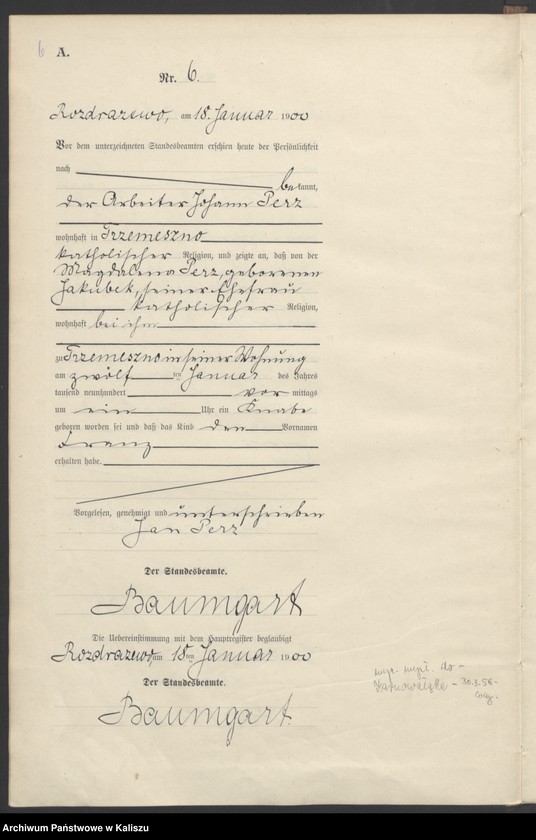 6
A.
Nr. 6.
Rozdrazewo, am 18. Januar 1900
Vor dem unterzeichneten Standesbeamten erschien heute der Persönlichkeit
nach be kannt,
der Arbeiter Johann Perz
wohnhaft in Trzemeszno
katholischer Religion, und zeigte an, daß von der
Magdalena Perz, geborenen
Jakubek, seiner Ehefrau
katholischer Religion,
wohnhaft bei ihm
zu Trzemeszno in seiner Wohnung
am zwölf ten Januar des Jahres
tausend neunhundert vor mittags
um ein Uhr ein Knabe
geboren worden sei und daß das Kind den Vornamen
Franz
erhalten habe.
Vorgelesen, genehmigt und unterschrieben
Jan Perz
Der Standesbeamte.
Baumgart
Die Uebereinstimmung mit dem Hauptregister beglaubigt
Rozdrazewo, am 18 ten Januar 1900
Der Standesbeamte.
Baumgart.
do -
- 30.3.56 -
Archiwum Państwowe w Kaliszu